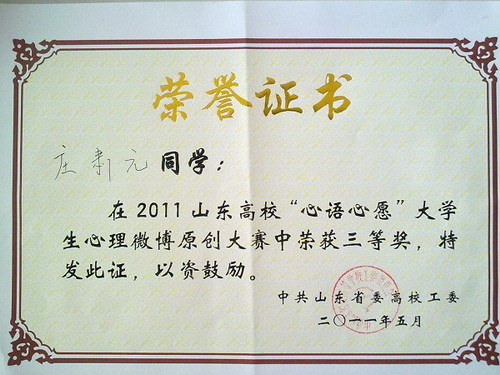 荣誉证书
庄肃元同学：
在2011山东高校“心语心愿”大学
生心理微博原创大赛中荣获三等奖，特
发此证，以资鼓励。
中共山东省委高校工委
二〇一一年五月